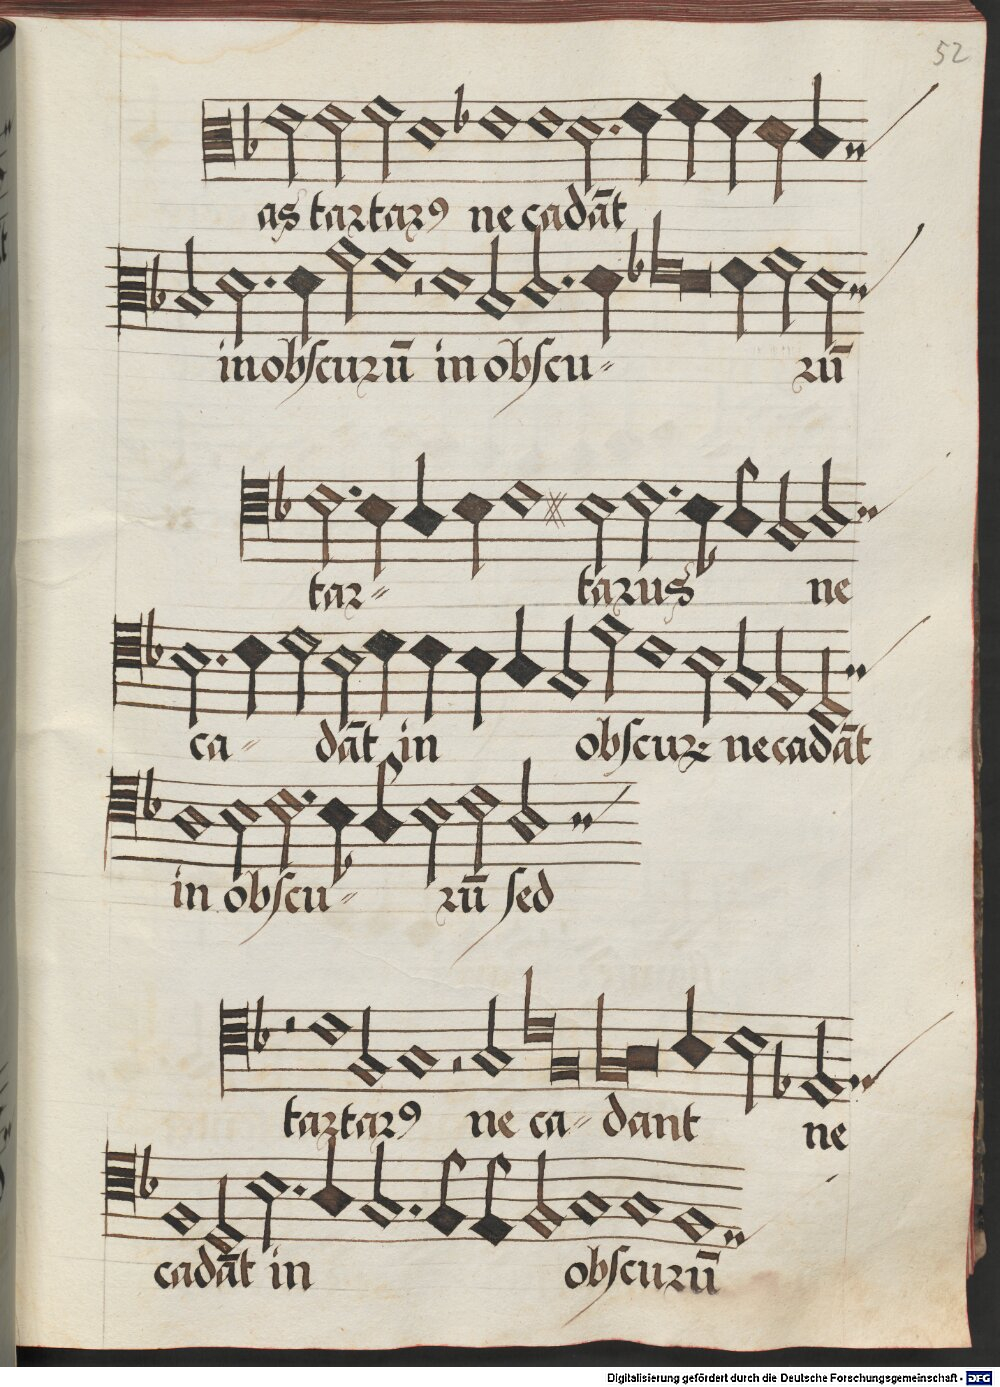 52
as tartarꝰ ne cadāt
in obscurū in obscu- rū
tar- tarus ne
ca- dāt in obscurꝫ ne cadāt
in obscu- rū sed
tartarꝰ ne ca- dant ne
cadāt in obscurū
Digitalisierung gefördert durch die Deutsche Forschungsgemeinschaft - DFG